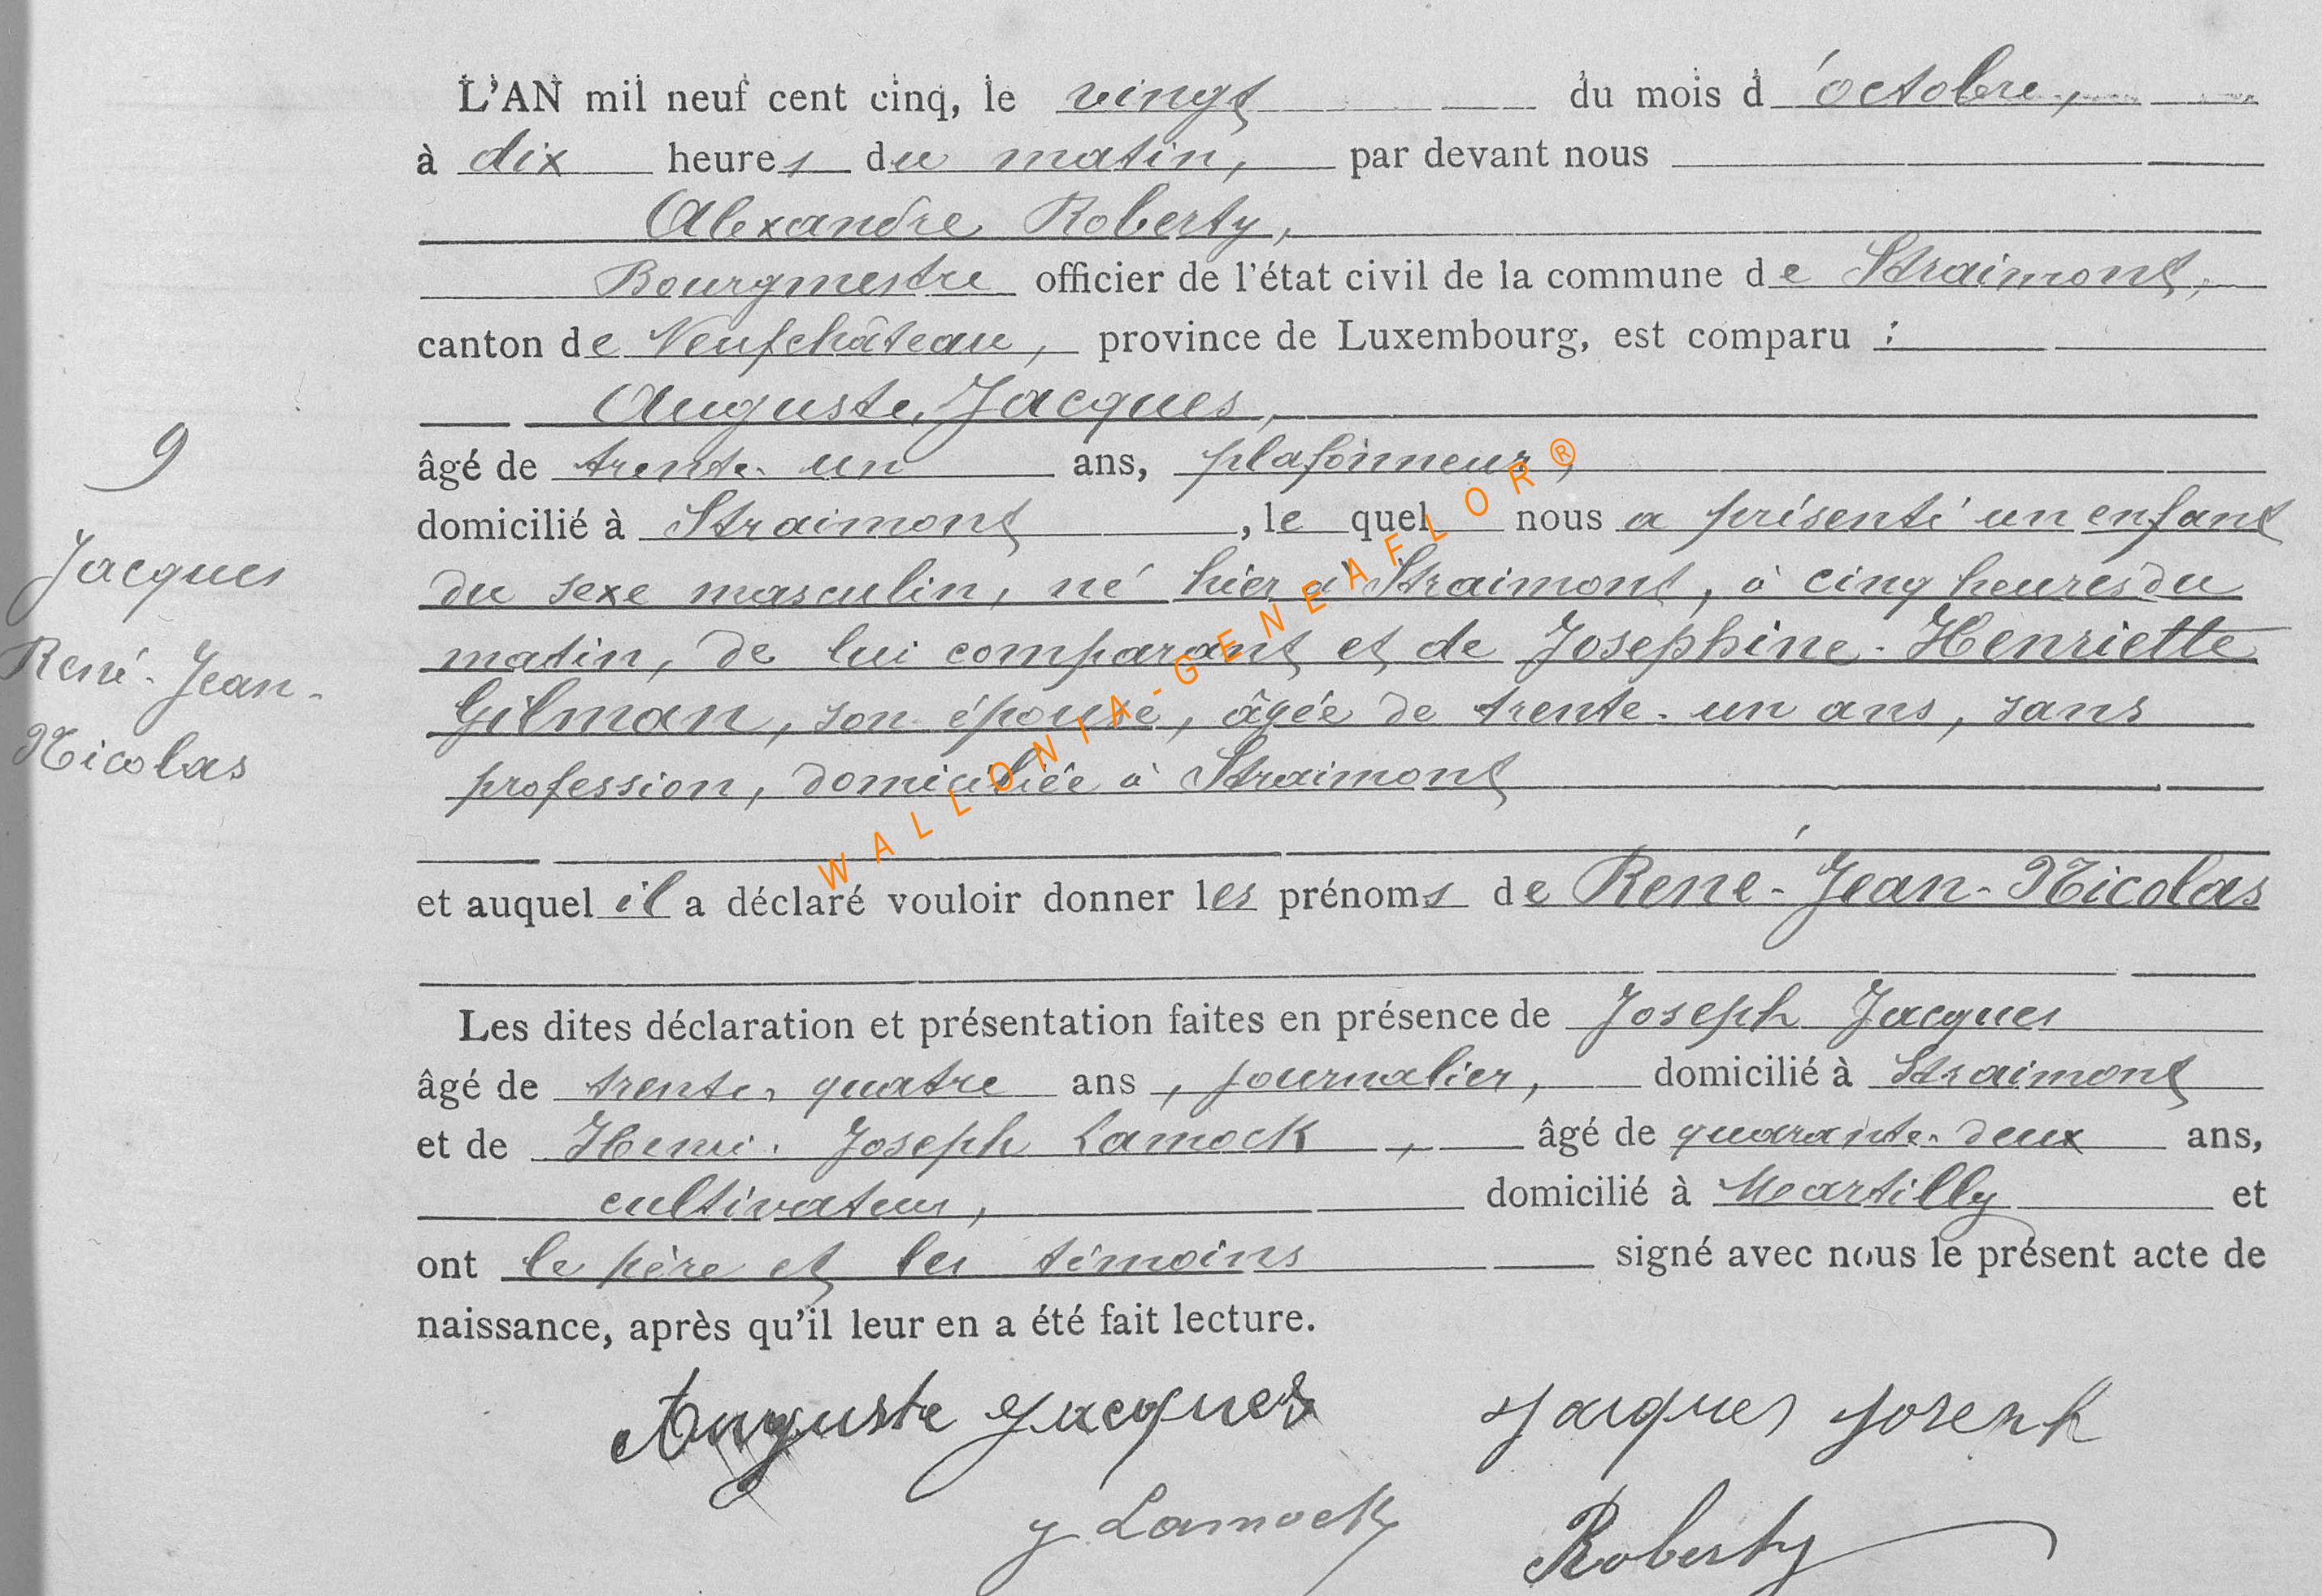 L'AN mil neuf cent cinq, le vingt du mois d'octobre,
à dix heures du matin, par devant nous
Alexandre Roberty,
Bourgmestre officier de l'état civil de la commune de Straimont,
canton de Neufchâteau, province de Luxembourg, est comparu :
Auguste Jacques,
âgé de trente-un ans, plafonneur,
domicilié à Straimont, le quel nous a présenté un enfant
du sexe masculin, né hier à Straimont, à cinq heures du
matin, de lui comparant et de Josephine-Henriette
Gilman, son épouse, âgée de trente-un ans, sans
profession, domiciliée à Straimont
et auquel il a déclaré vouloir donner les prénoms de René-Jean-Nicolas
Les dites déclaration et présentation faites en présence de Joseph Jacques
âgé de trente-quatre ans, journalier, domicilié à Straimont
et de Henri-Joseph Lamock, âgé de quarante-deux ans,
cultivateur, domicilié à Martilly et
ont le père et les témoins signé avec nous le présent acte de
naissance, après qu'il leur en a été fait lecture.
Auguste Jacques Jacques Joseph
J Lamock Roberty
9
Jacques
René-Jean-
Nicolas
WALLONIA-GENEAFLOR®